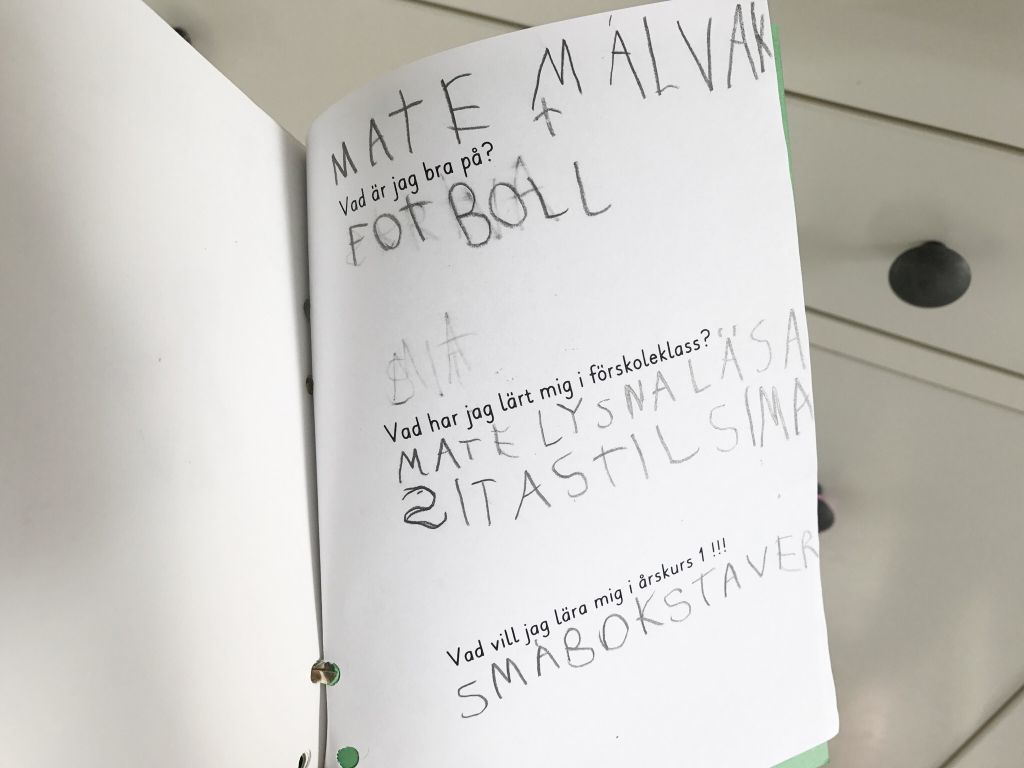 MATE MÅLVAK
T
Vad är jag bra på?
FOTBOLL
Vad har jag lärt mig i förskoleklass?
MATE LYSNA LÄSA
SITASTIL SIMA
Vad vill jag lära mig i årskurs 1 !!!
SMÅBOKSTAVER